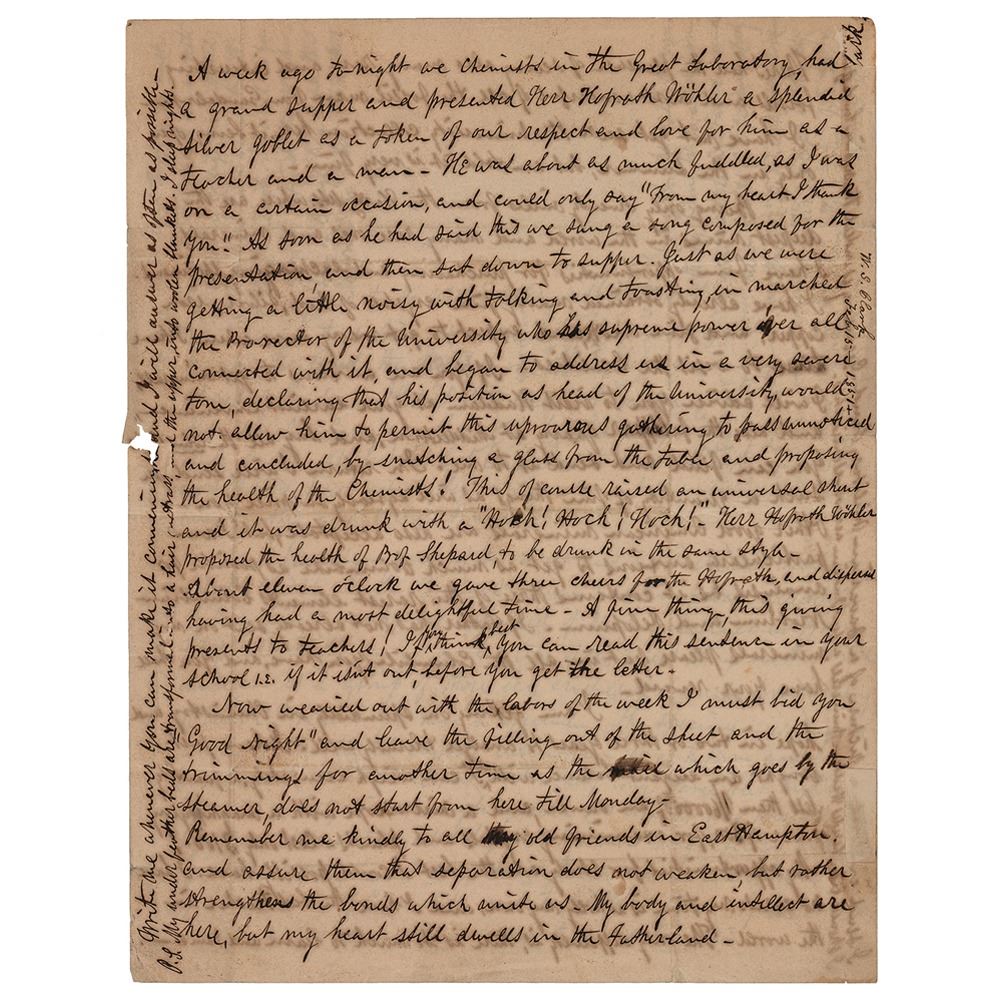 A week ago to-night we chemists in the Great Laboratory, had
a grand supper and presented Herr Hofrath Wöhler a splendid
silver goblet as a token of our respect and love for him as a
teacher and a man - He was about as much fuddled, as I was
on a certain occasion, and could only say "From my heart I thank
you." As soon as he had said this we sang a song composed for the
presentation, and then sat down to supper. Just as we were
getting a little noisy with talking and toasting, in marched
the Pro-rector of the University who has supreme power over all
connected with it, and began to address us in a very severe
tone, declaring that his position as head of the University, would
not allow him to permit this uproarous gathering to pass unnoticed
and concluded, by snatching a glass from the table and proposing
the health of the Chemists! This of course raised an universal shout
and it was drunk with a "Hoch! Hoch! Hoch!" - Herr Hofrath Wöhler
proposed the health of Prof Shepard, to be drunk in the same style -
About eleven o'clock we gave three cheers for the Hofrath, and disperse
having had a most delightful time - A fine thing, this giving
presents to teachers! I think best you can read this sentence in your
school i.e. if it isn't out, before you get the letter -
Now wearied out with the labors of the week I must bid you
Good Night" and leave the filling out of the sheet and the
trimmings for another time as the which goes by the
steamer, does not start from here till Monday -
Remember me kindly to all my old friends in East Hampton,
and assure them that separation does not weaken but rather
strengthens the bonds which unite us - My body and intellect are
here, but my heart still dwells in the Fatherland -
Write me whenever you can make it convenient and I will answer as often as possible -
P.S. My under feather beds are transformed into a hair and the upper, into woolen blankets. I sleep nights.
W. S. Clark
1851